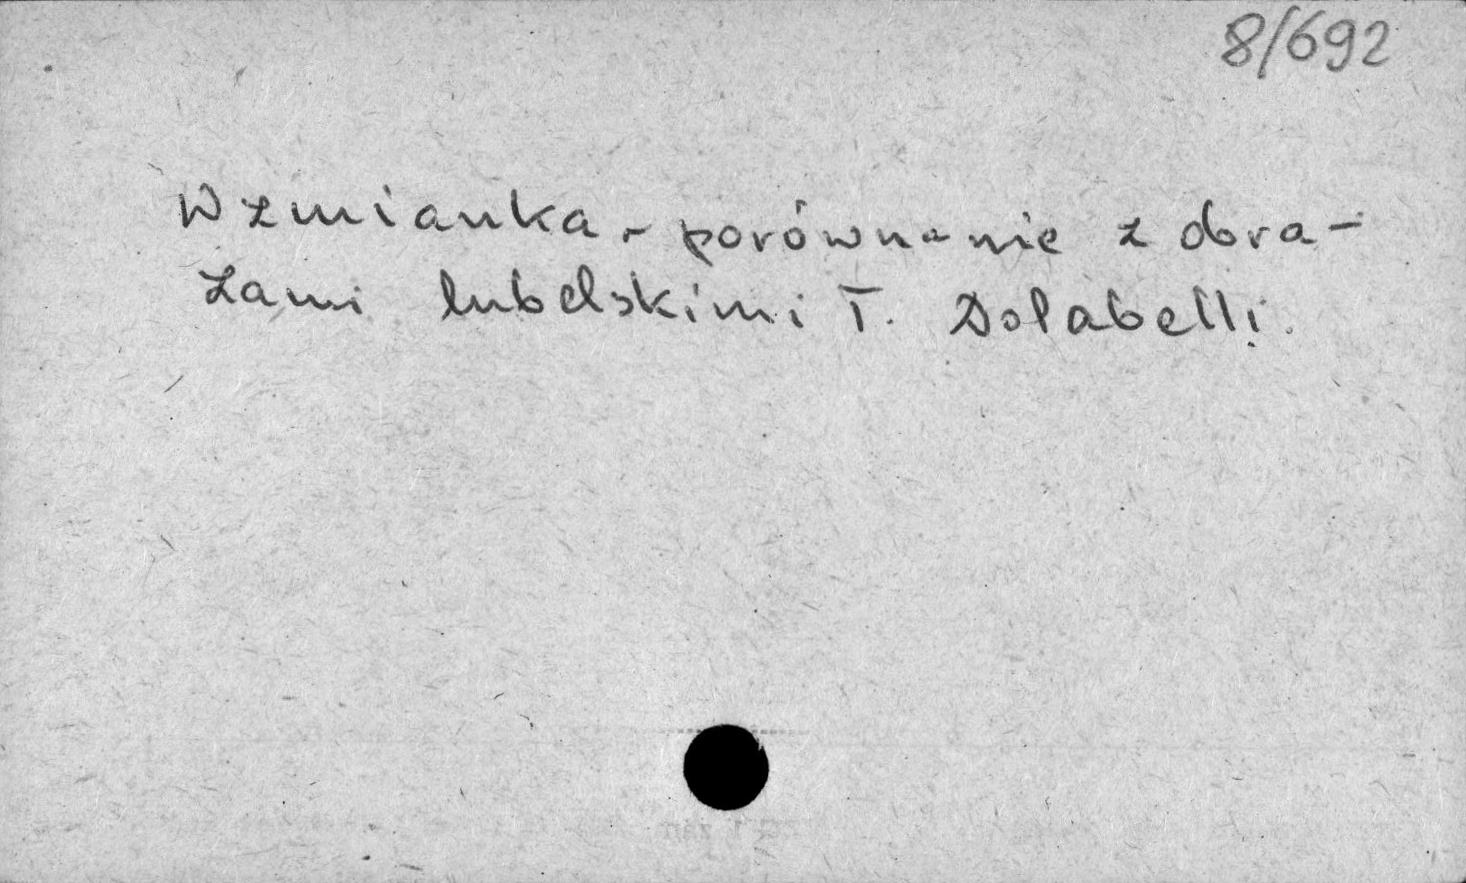 8/692
Wzmianka - porównanie z obra-
zami lubelskimi T. Dolabelli.